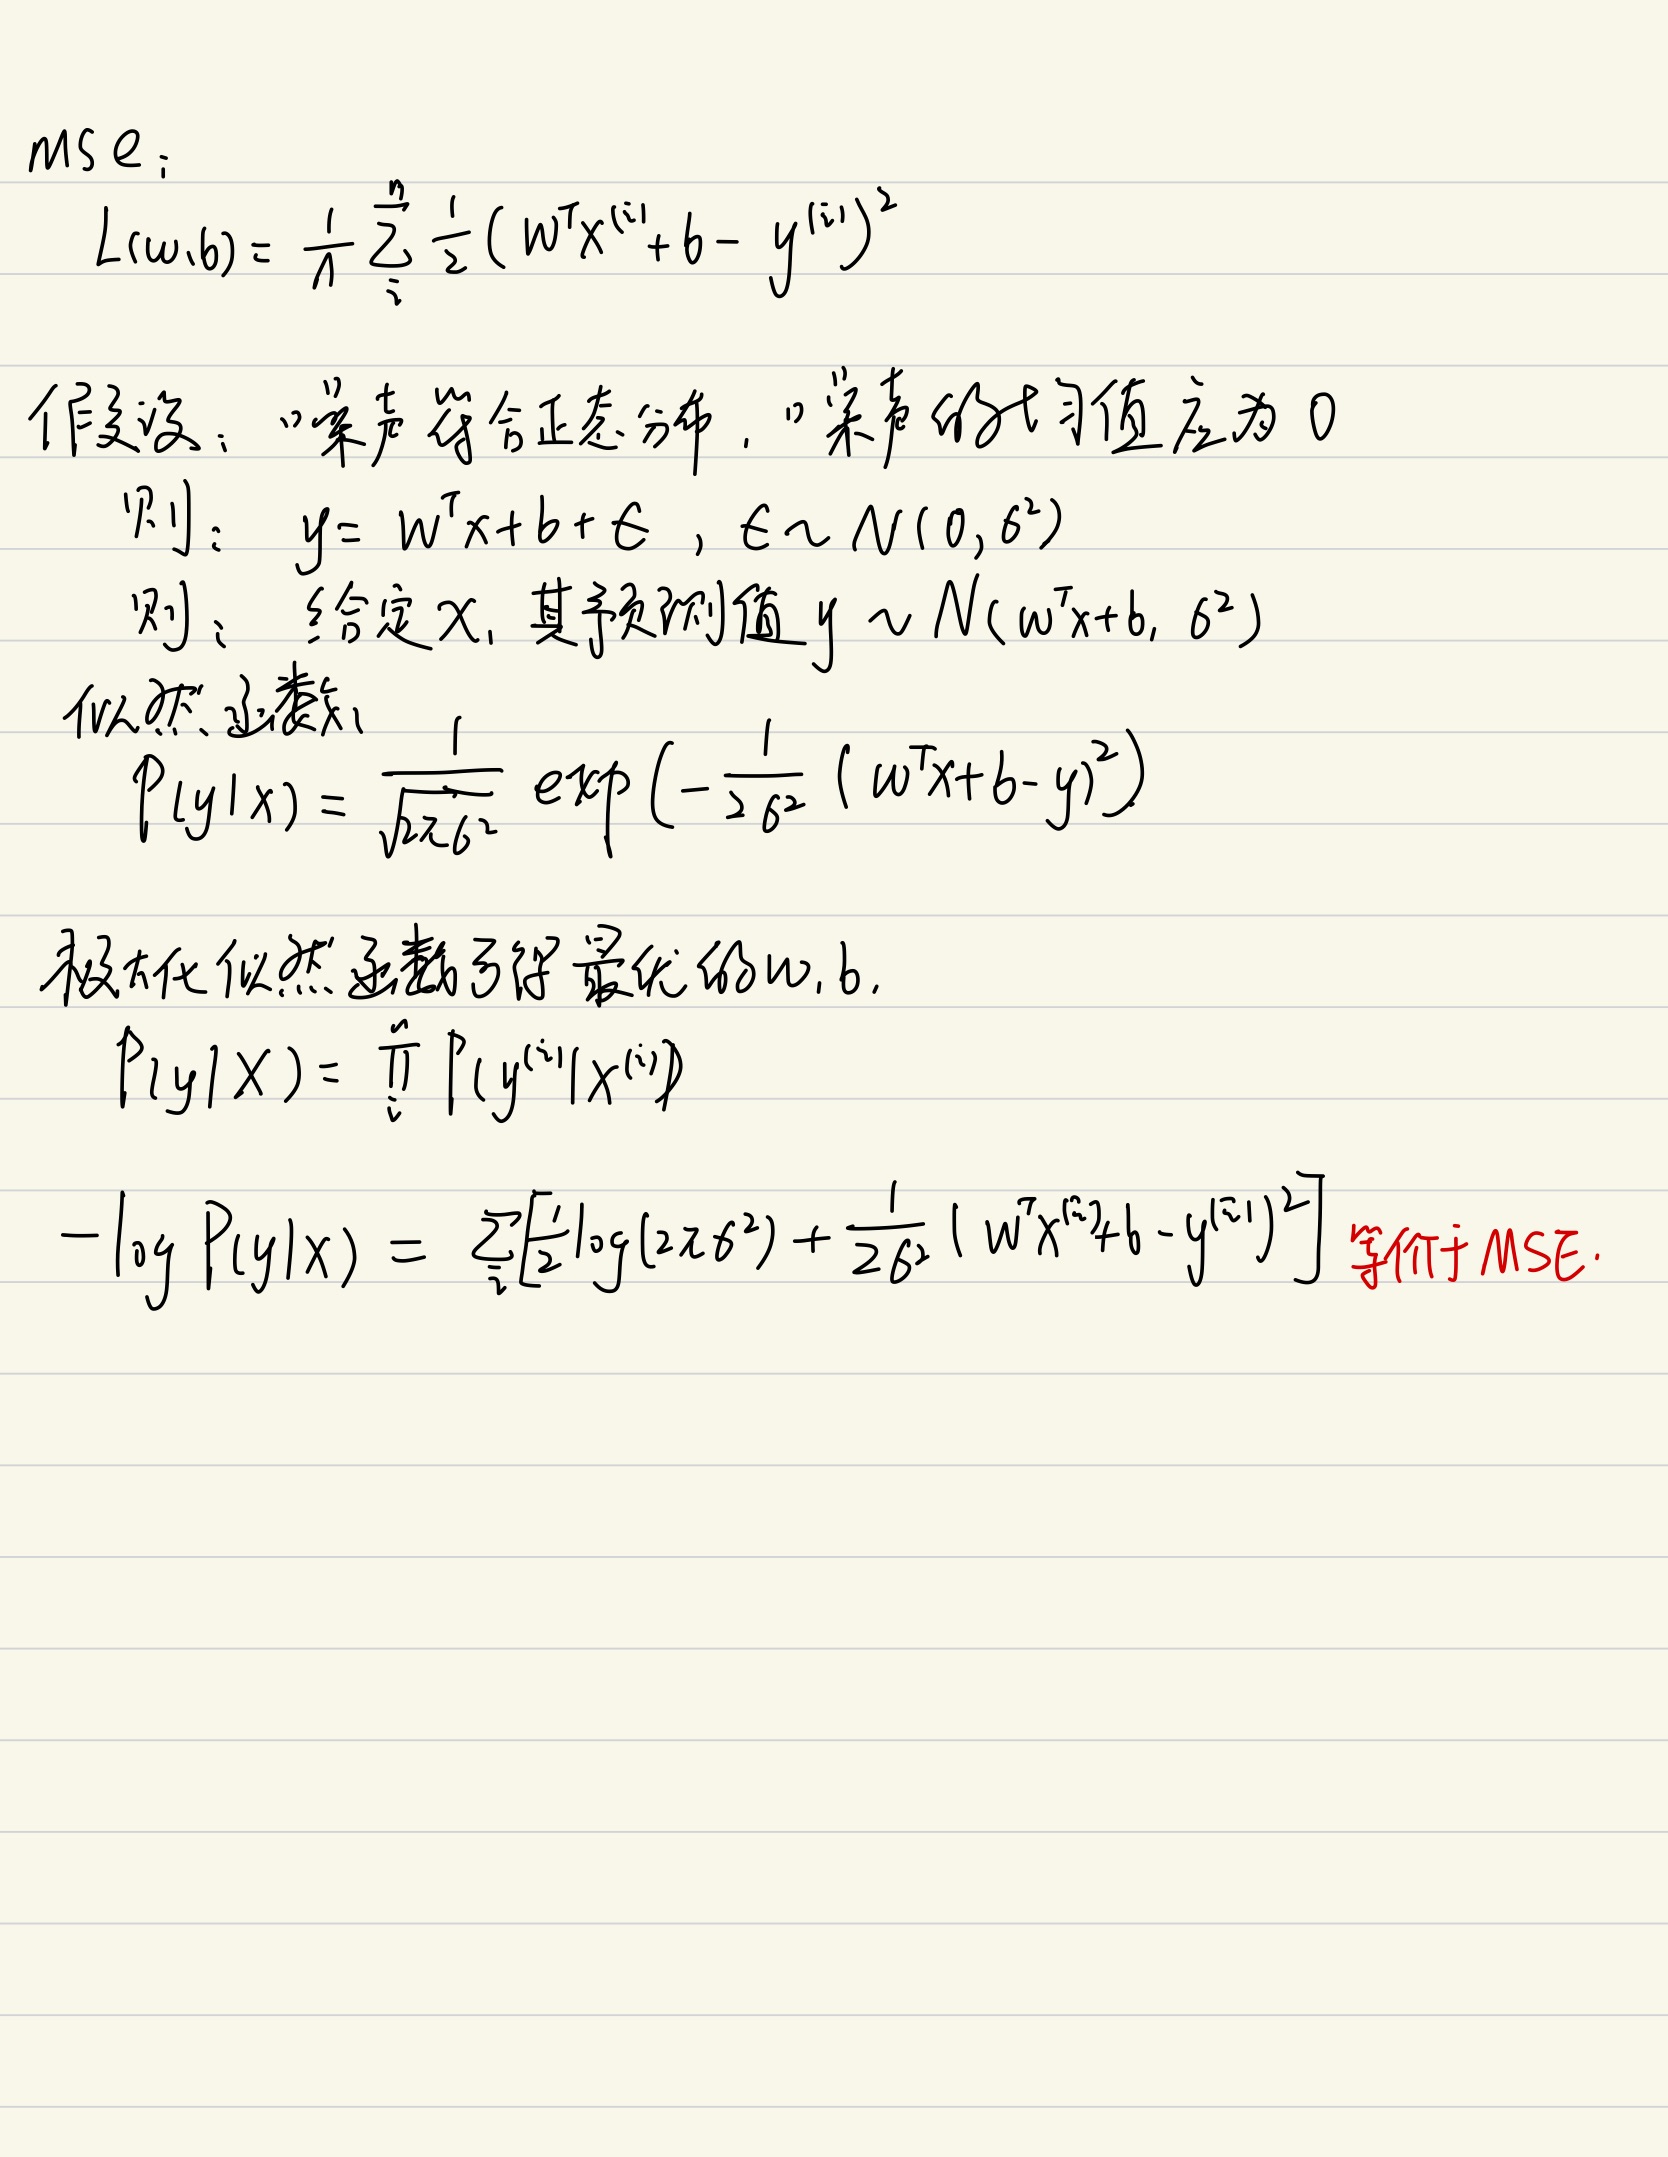 mse:
L(w,b) = 1/n Σ_i^n 1/2 (w^T x^(i) + b - y^(i))^2
假设: 噪声符合正态分布, 噪声的均值应为 0
则: y = w^T x + b + ϵ , ϵ ~ N(0, σ^2)
则: 给定 x, 其预测值 y ~ N(w^T x+b, σ^2)
似然函数:
P(y|x) = 1/√(2πσ^2) exp(- 1/(2σ^2) (w^T x+b-y)^2)
极大化似然函数可得最优的w,b.
P(y|X) = Π_i^n P(y^(i)|x^(i))
-log P(y|x) = Σ_i [1/2 log(2πσ^2) + 1/(2σ^2) (w^T x^(i)+b - y^(i))^2] 等价于MSE.